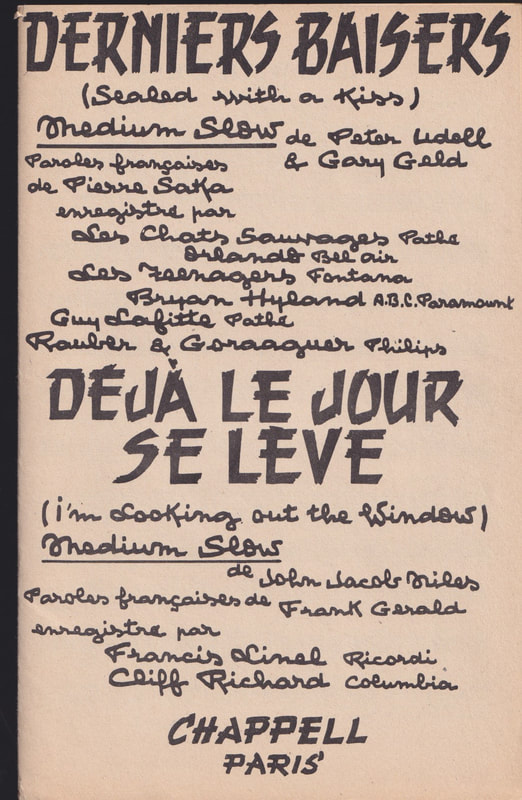 DERNIERS BAISERS
(Sealed with a Kiss)
Medium Slow de Peter Udell
& Gary Geld
Paroles françaises
de Pierre Saka
enregistré par
Les Chats Sauvages Pathé
Orlando Bel air
Les Teenagers Fontana
Bryan Hyland A.B.C. Paramount
Guy Lafitte Pathé
Rauber & Goraaguer Philips
DÉJÀ LE JOUR
SE LÈVE
(i'm Looking out the Window)
Medium Slow
de John Jacob Niles
Paroles françaises de Frank Gerald
enregistré par
Francis Linel Ricordi
Cliff Richard Columbia
CHAPPELL
PARIS